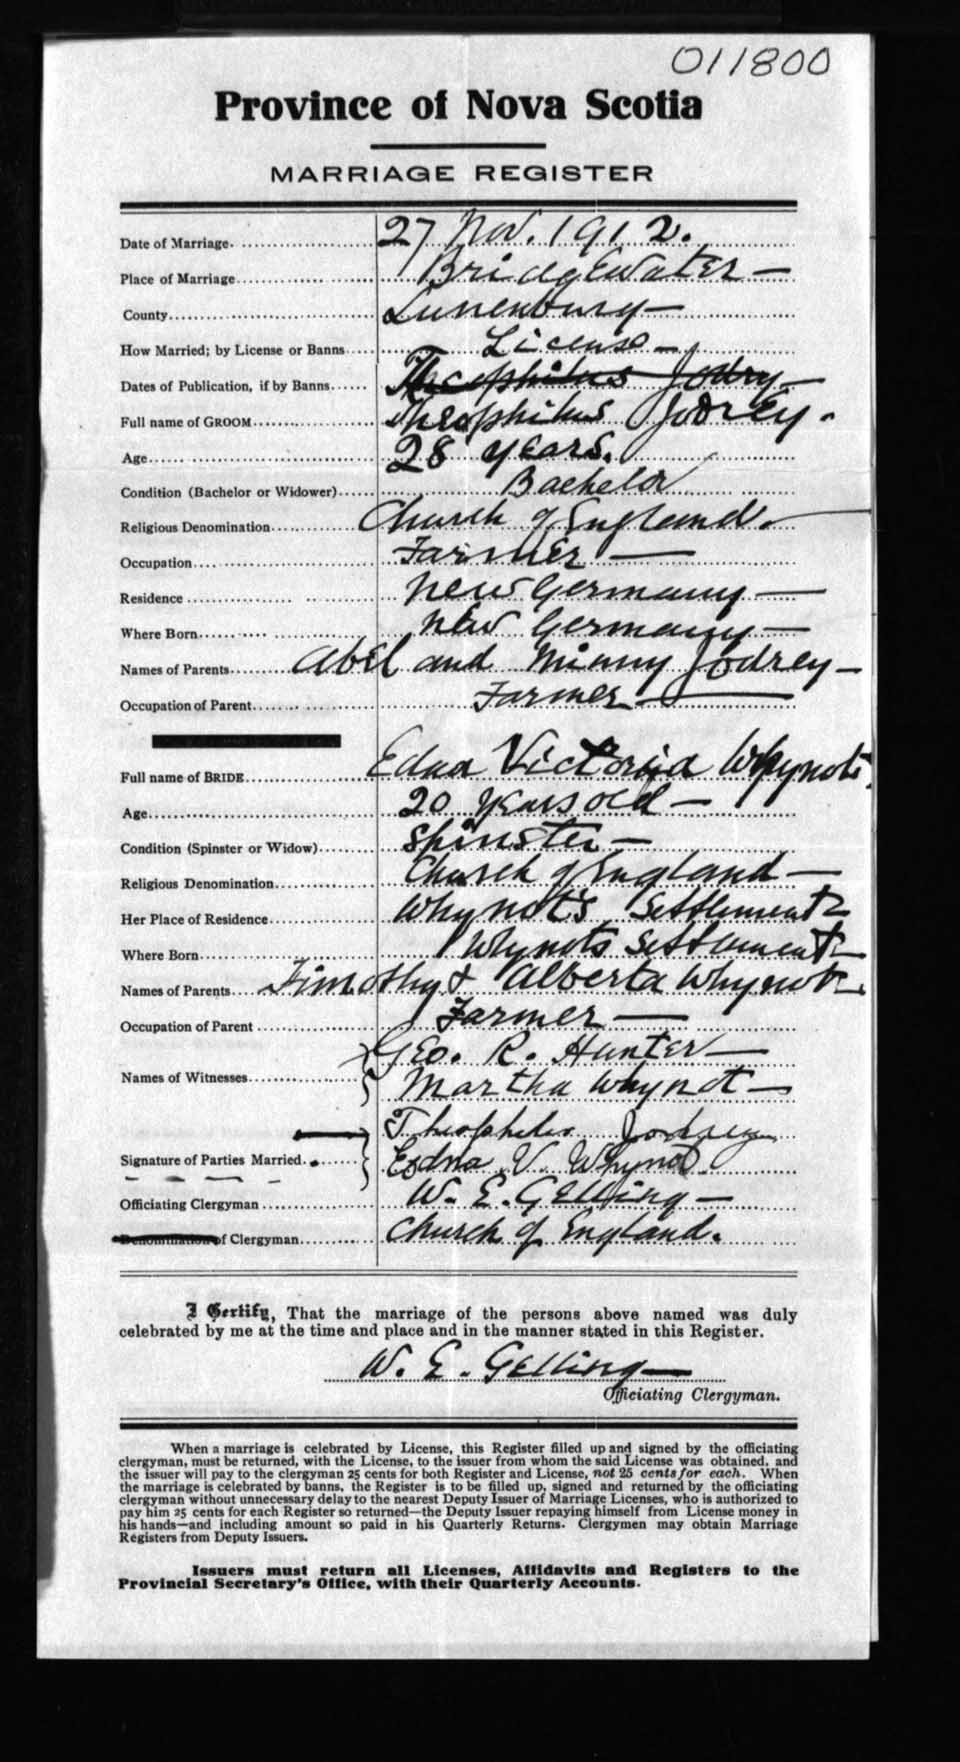 011800
Province of Nova Scotia
MARRIAGE REGISTER
Date of Marriage. 27 Nov. 1912.
Place of Marriage BridgEwater —
County Lunenburg —
How Married; by License or Banns License —
Dates of Publication, if by Banns Theophilus Jodry —
Full name of GROOM Theophilus Jodrey.
Age 28 years.
Condition (Bachelor or Widower) Bachelor
Religious Denomination Church of England.
Occupation Farmer —
Residence New Germany —
Where Born New Germany —
Names of Parents Abel and Minny Jodrey —
Occupation of Parent Farmer —
Full name of BRIDE Edna Victoria Whynot
Age 20 years old —
Condition (Spinster or Widow) Spinster —
Religious Denomination Church of England —
Her Place of Residence Whynot's Settlement
Where Born Whynots Settlement
Names of Parents Timothy & Alberta Whynot
Occupation of Parent Farmer —
Names of Witnesses Geo. R. Hunter —
Martha Whynot —
Theophilus Jodrey
Signature of Parties Married. Edna V. Whynot
Officiating Clergyman W. E. Gelling —
Denomination of Clergyman Church of England.
I Certify, That the marriage of the persons above named was duly
celebrated by me at the time and place and in the manner stated in this Register.
W. E. Gelling
Officiating Clergyman.
When a marriage is celebrated by License, this Register filled up and signed by the officiating
clergyman, must be returned, with the License, to the issuer from whom the said License was obtained, and
the issuer will pay to the clergyman 25 cents for both Register and License, not 25 cents for each. When
the marriage is celebrated by banns, the Register is to be filled up, signed and returned by the officiating
clergyman without unnecessary delay to the nearest Deputy Issuer of Marriage Licenses, who is authorized to
pay him 25 cents for each Register so returned—the Deputy Issuer repaying himself from License money in
his hands—and including amount so paid in his Quarterly Returns. Clergymen may obtain Marriage
Registers from Deputy Issuers.
Issuers must return all Licenses, Affidavits and Registers to the
Provincial Secretary's Office, with their Quarterly Accounts.